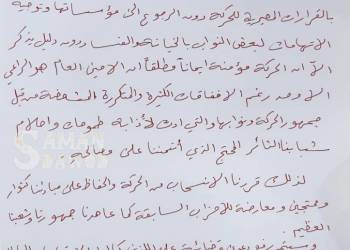 بالقرارات المصيرية للحركة دون الرجوع الى مؤسساتها وتوجيه
الاتهامات لبعض النواب بالخيانة والفساد ودون دليل يذكر
الا انه الحركة مؤمنة ايماناً مطلقاً انه الامين العام هو الراعي
رغم الاخفاقات الكثيرة والمتكررة من قبل
جمهور الحركة ونوابها والتي ادت لأذابة طموحات واحلام
شبابنا الثائر المحتج الذي أئتمننا على
لذلك قررنا الانسحاب من الحركة والحفاظ على مبادئنا كثوار
ومحتجين ومعارضة للأحزاب السابقة كما عاهدنا جمهورنا وشعبنا
العظيم
SAMAN